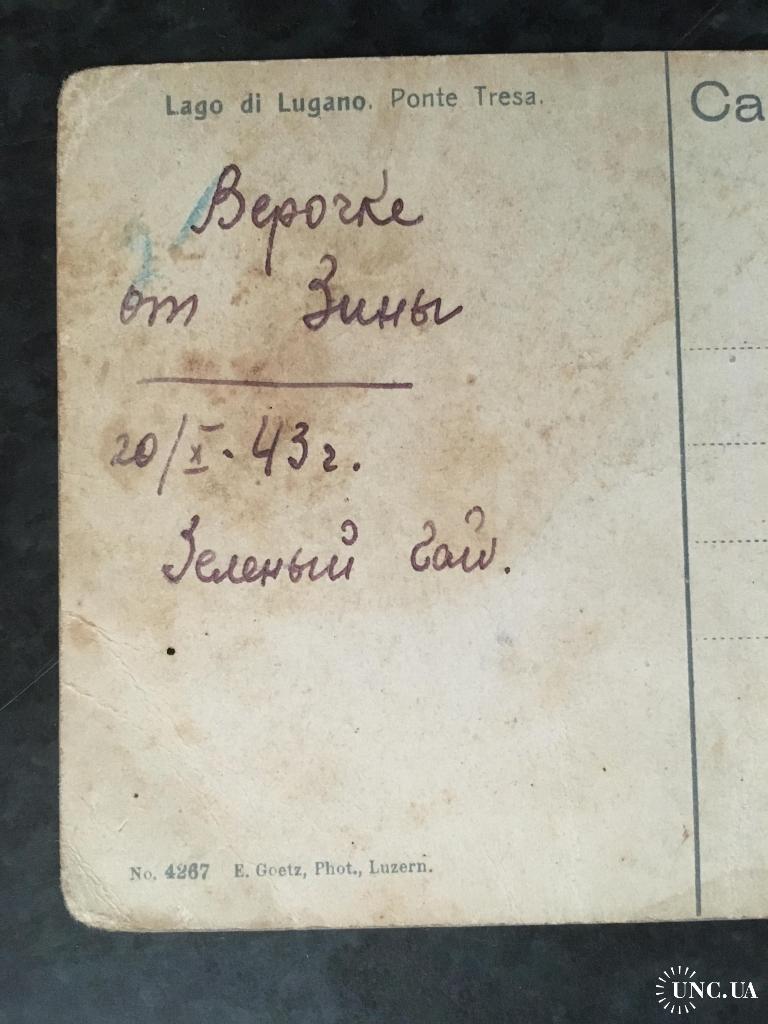 Lago di Lugano. Ponte Tresa.
Ca
Верочке
от Зины
20/X. 43 г.
Зеленый Гай.
No. 4267 E. Goetz, Phot., Luzern.
UNC.UA